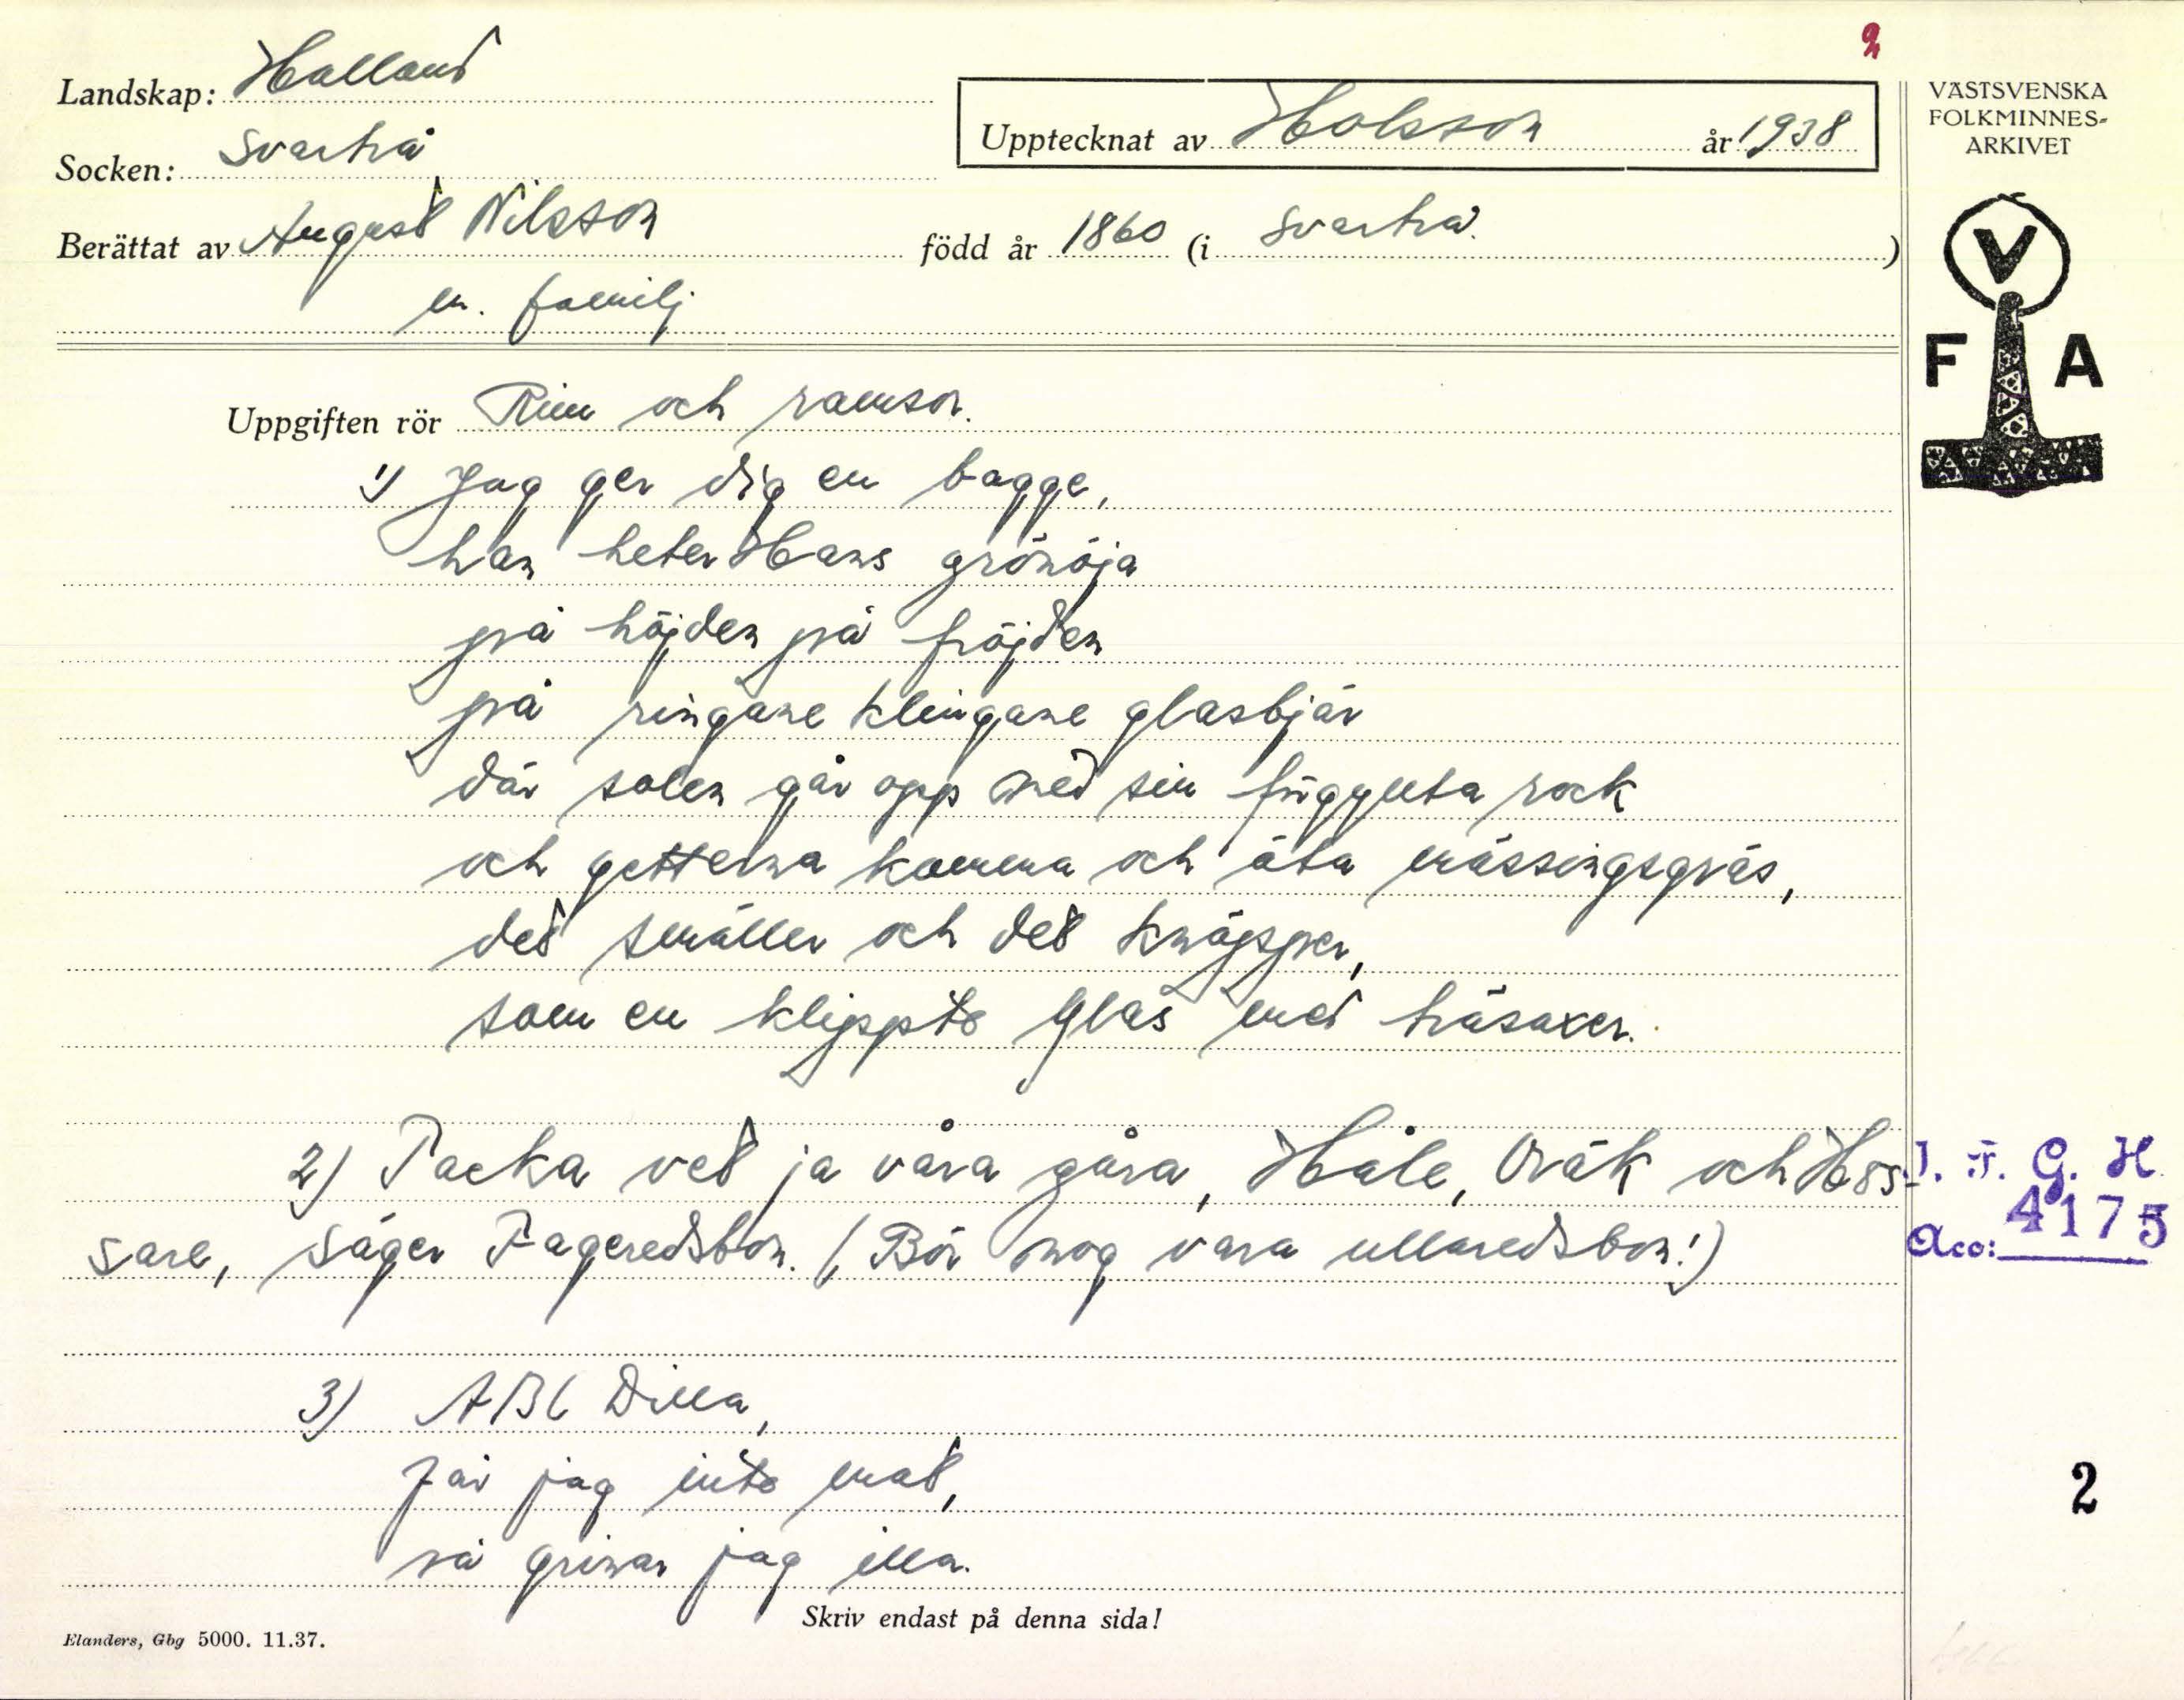 2
Landskap: Halland
Socken: Svartrå
Upptecknat av Holsson år 1938
Berättat av August Nilsson född år 1860 (i Svartrå.)
m. familj
VÄSTSVENSKA
FOLKMINNES-
ARKIVET
V
F A
Uppgiften rör Rim och ramsor.
1) Jag ger dig en bagge,
han heter Hans grönöja
på höjden på fröjden
på ringane klingane glasbjär
där solen går opp med sin rock
och getterna komma och äta mässingsgräs,
det smäller och det knäpper,
som en klippte glas med träsaxer.
2) Packa vet ja våra gåra, Håle, Oråk och Hös-
sare, säger Fageredsbon. (Bör nog vara ullaredsbon!)
I. F. G. H.
Acc: 4175
3) ABC Dilla,
Får jag inte mat,
så grinar jag illa.
2
Skriv endast på denna sida!
Elanders, Gbg 5000. 11.37.